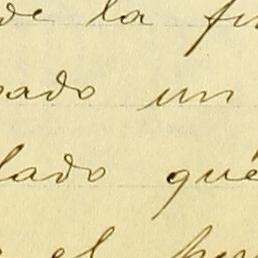 de la fi
sado un
lado qué
el